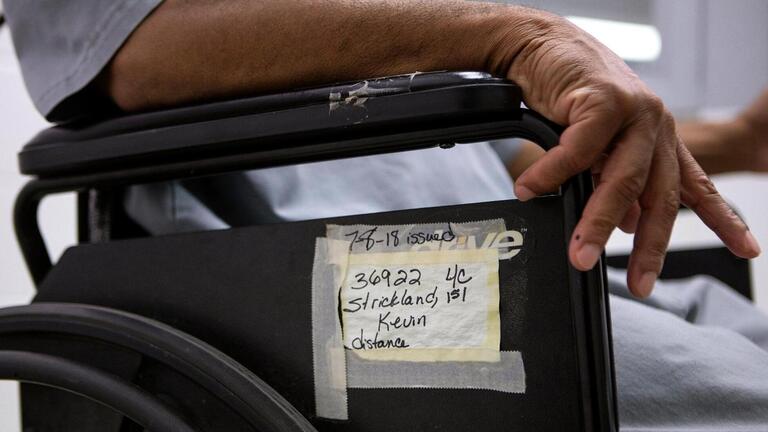 7-8-18 issued
drive
36922 4/C
Strickland, 1st
Kevin
distance